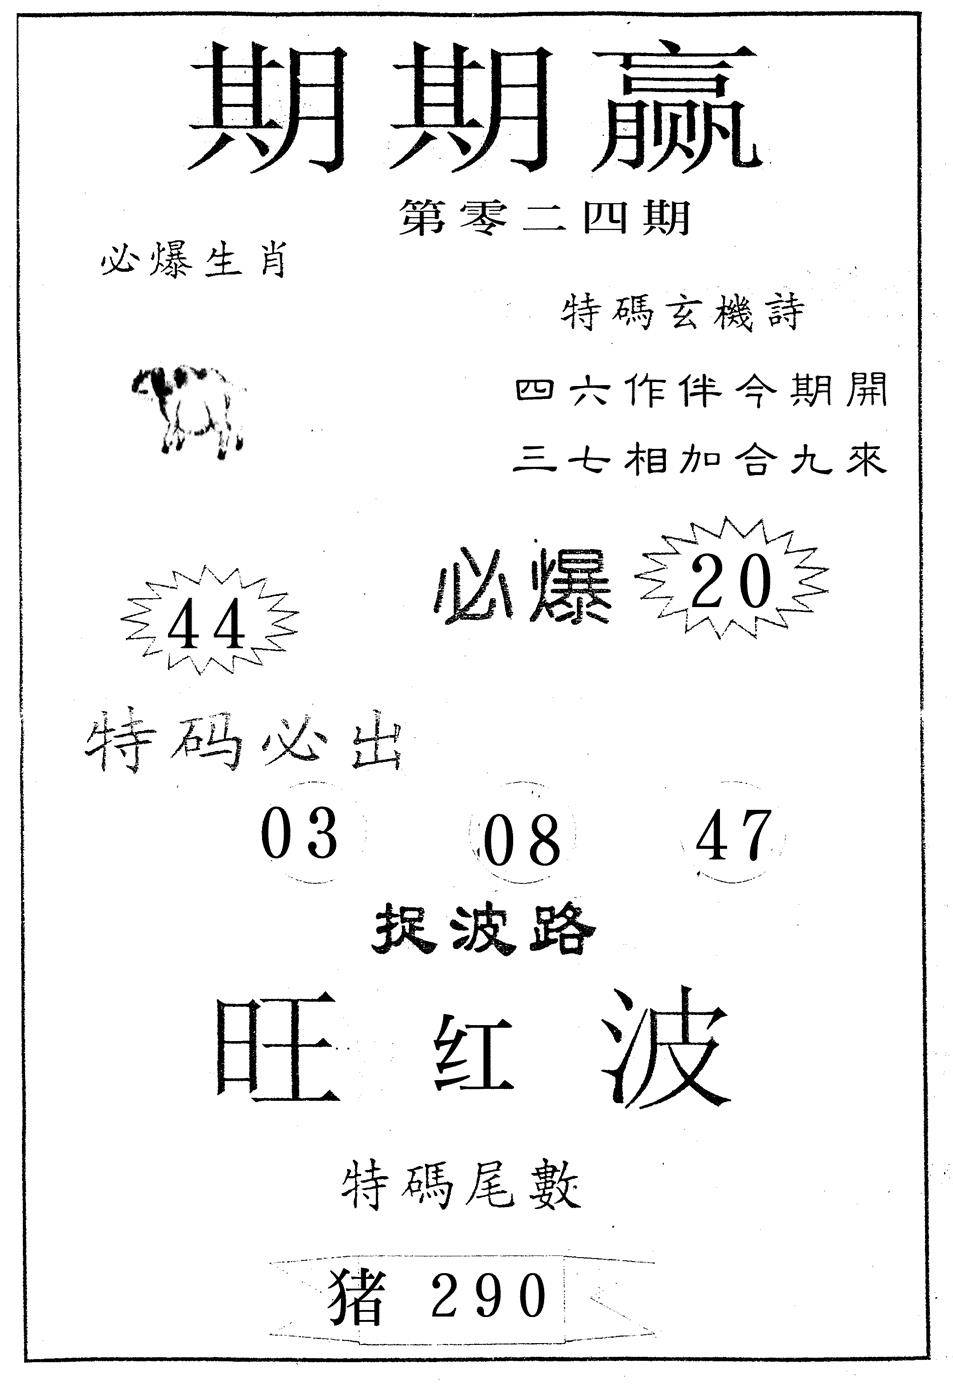 期期赢
第零二四期
必爆生肖
特碼玄機詩
四六作伴今期開
三七相加合九來
必爆 20
44
特码必出
03 08 47
捉波路
旺红波
特碼尾數
猪 290